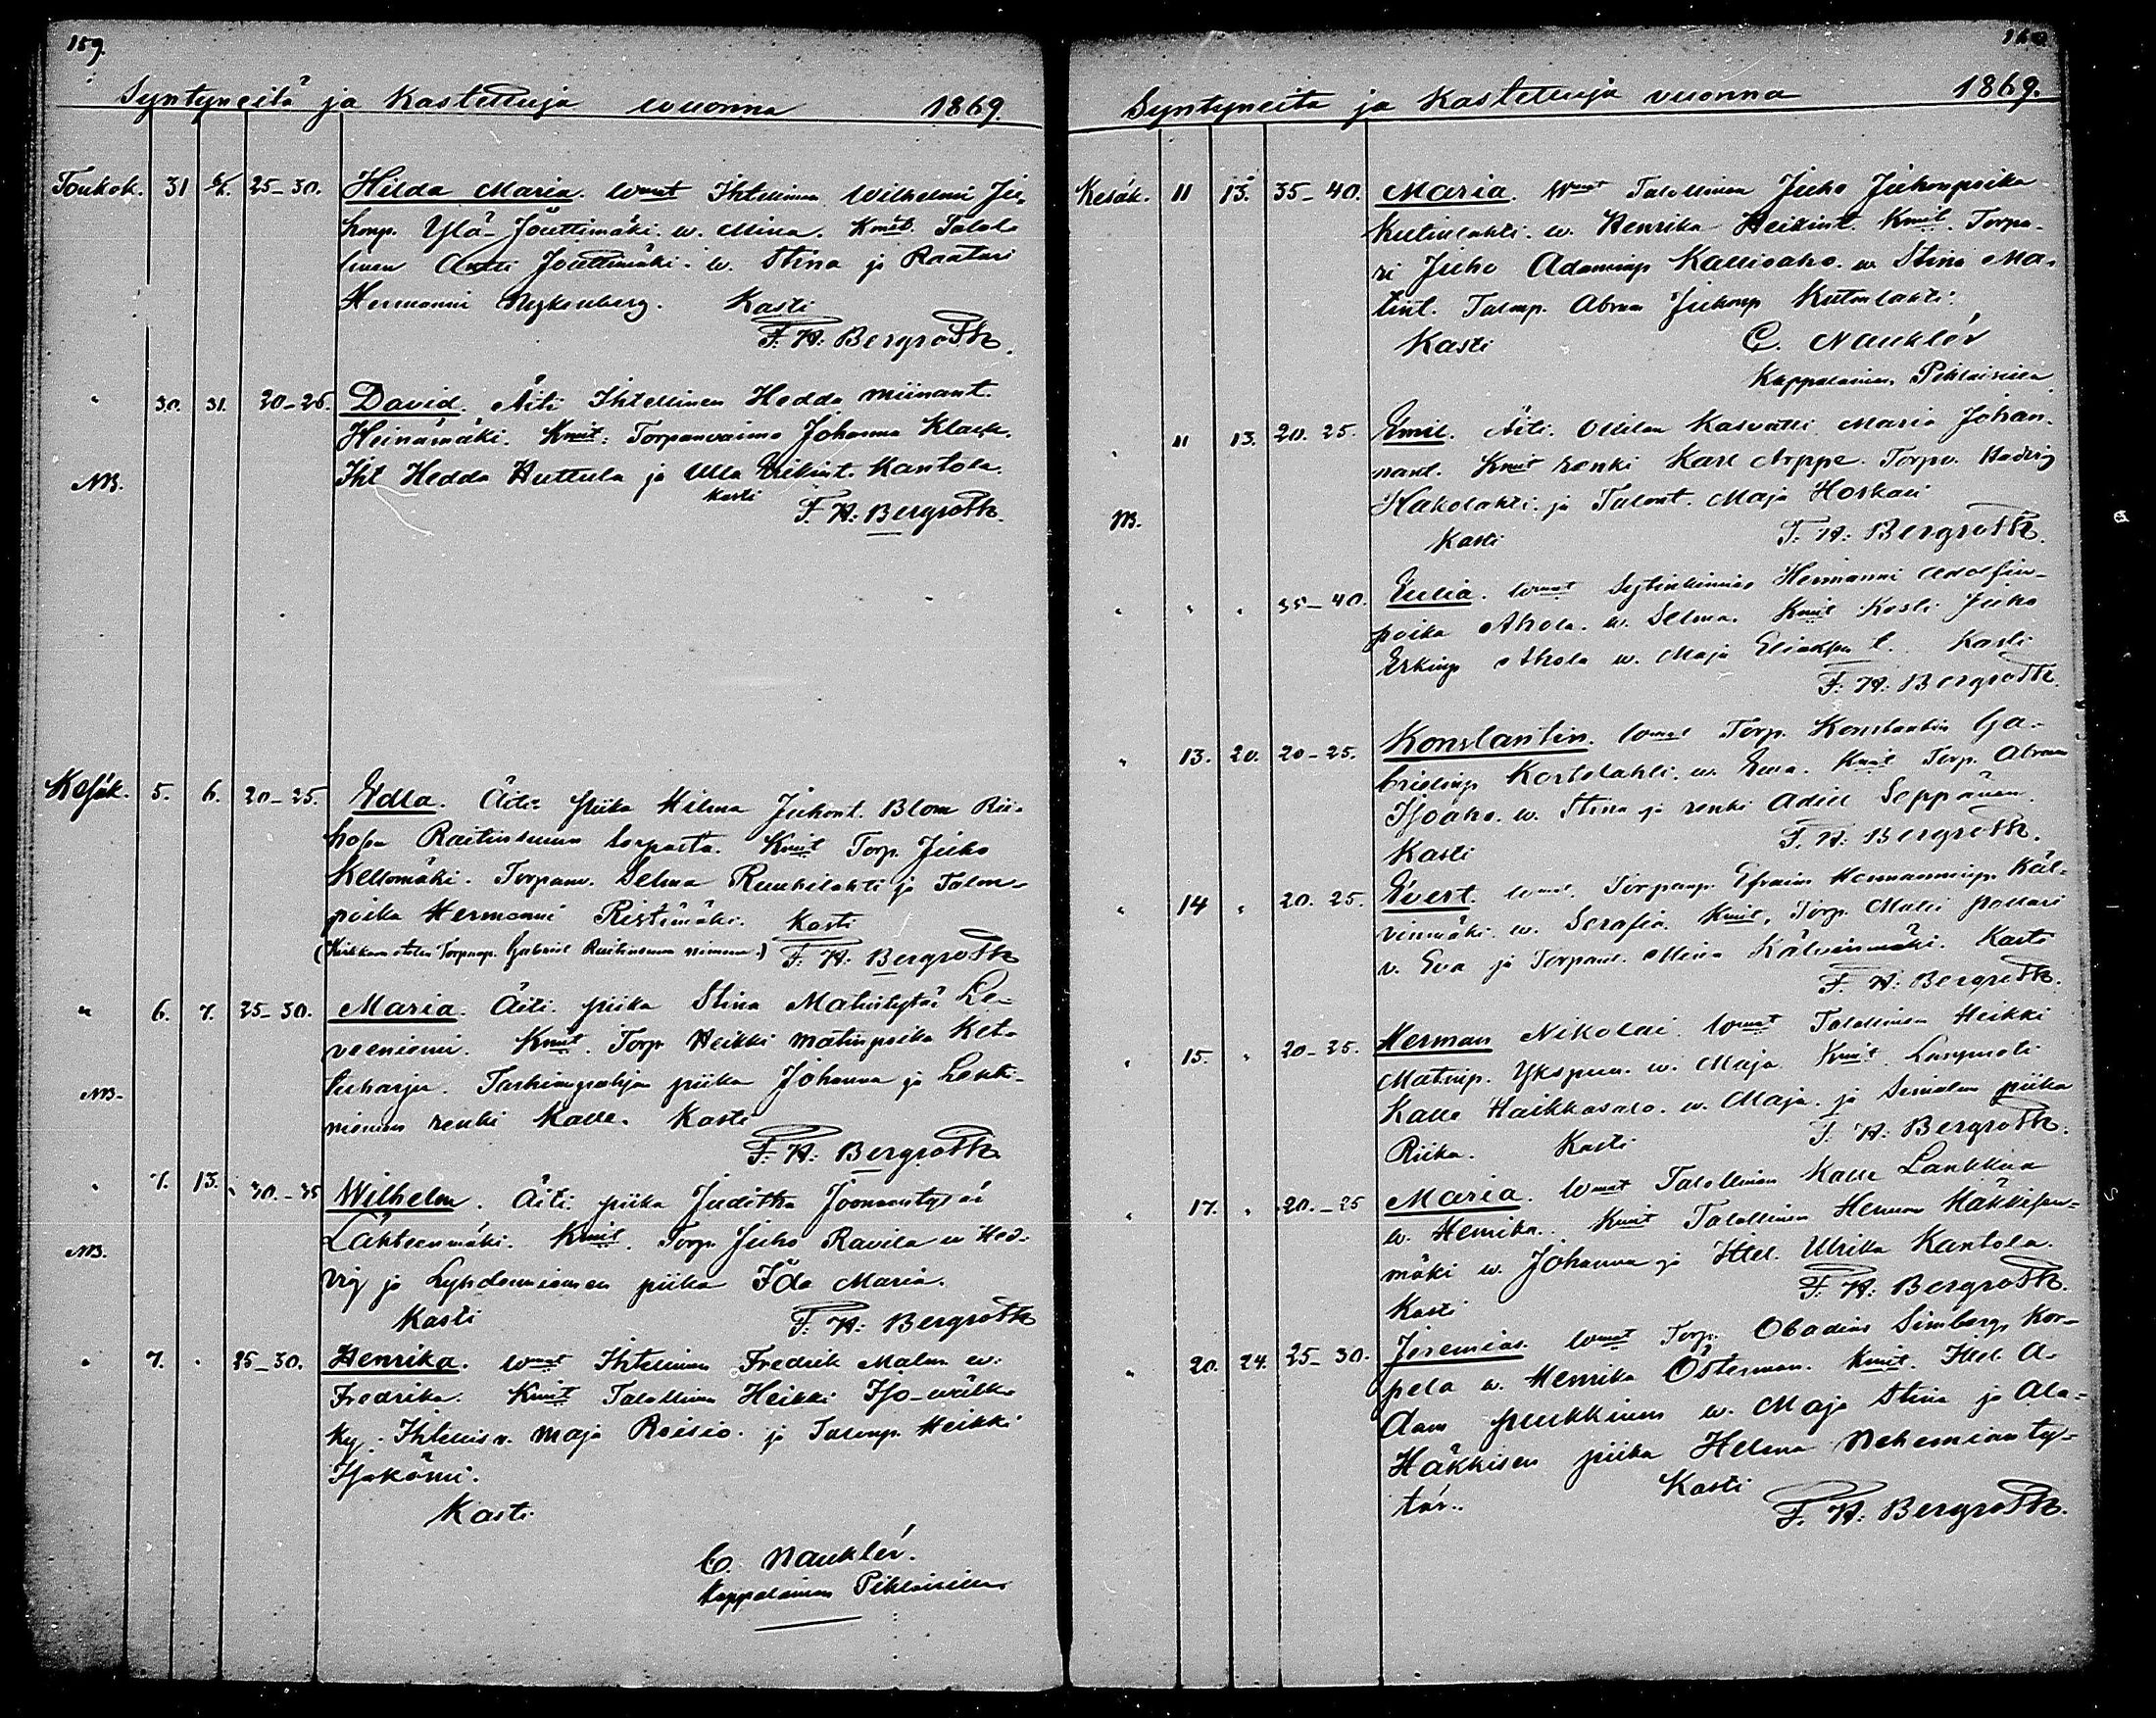 159.
Syntyneitä ja Kastettuja wuonna 1869.
Toukok. 31 6/6. 25-30. Hilda Maria. Wmat Ihtellinen Wilhelmi Ju-
honp. Ylä-Jouttimäki. w. Mina. Kmit. Talol-
linen Antti Jouttimäki. w. Stina ja Raatari
Hermanni Nykenberg. Kasti
F. H: Bergroth.
" 30. 31. 20-25. David. Äiti Ihtellinen Hedda miinant.
Heinämäki. Kmit: Torpanvaimo Johanna Klack.
NB. Iht Hedda Huttula ja Ulla Erikint. Kantola.
Kasti F. H: Bergroth.
Kesäk. 5. 6. 20-25. Edla. Äiti piika Hilma Juhont. Blom Rii-
hosen Raitinkumun torpasta. Kmit Torp. Juho
Kellomäki. Torpanv. Selma Ruuhilahti ja Talon-
poika Hermanni Ristimäki. Kasti
(Torpanp. Gabriel nimeen.) F. H: Bergroth
" 6. 7. 25-30. Maria. Äiti piika Stina Matintytär Le-
veeniemi. Kmit. Torp Heikki matinpoika Ket-
NB. piika Johanna ja Lehti-
niemen renki Kalle. Kasti
F. H: Bergroth.
" 7. 13. 30.-35 Wilhelm. Äiti piika Juditha Joonaantytär
NB. Lähteenmäki. Kmit. Torp. Juho Ravila w Hed-
vig ja piika Ida Maria.
Kasti F. H: Bergroth
" 7. " 25-30. Henrika. Wmat Ihtellinen Fredrik Malm w.
Fredrika. Kmit Talollinen Heikki Iso-
Maja Roisio. ja Talonp. Heikki
Isokömi.
Kasti
C. Nauklér.
Kappalainen Pihlaisilla
160
Syntyneitä ja Kastettuja vuonna 1869.
Kesäk. 11 13. 35-40. Maria. Wmat Talollinen Juho Juhonpoika
Kutinlahti. w. Henrika Heikint. Kmit. Torpa-
ri Juho Adaminp Kallioaho. w. Stina Ma-
tint. Talonp. Abram Juhonp Kutinlahti.
Kasti C. Nauklér
Kappalainen Pihlaisilla
" 11 13. 20. 25. Emil. Äiti. Ollilan Kasvatti Maria Johan-
nant. Kmit renki Karl Arppe. Torpv. Hedvig
NB. Hakolahti. ja Talont. Maja Hoskari
Kasti F. H: Bergroth.
" " " 35-40. Eulia. Wmat Sytinkimies Hermanni Adolfin-
poika Ahola. w. Selma. Kmit Kesti Juho
Erkinp Ahola w. Maja t. Kasti
F: H: Bergroth.
" 13. 20. 20-25. Konstantin. Wmat Torp. Konstantin Ga-
brielinp Kortelahti. w. Eva. Kmit Torp. Abram
Isoaho. w. Stina ja renki Adiel Seppänen.
Kasti F. H: Bergroth.
" 14 " 20. 25. Evert. Wmat. Torpanp. Efraim Hermanninp. Käl-
vinmäki. w. Serafia. Kmit, Torp. Matti pollari
v. Eva ja Torpant. Mina Kälvinmäki. Kasti
F. H: Bergroth.
" 15. " 20-25. Herman Nikolai. Wmat Talollinen Heikki
Matinp. Ykspuu. w. Maja. Kmit. Lampuoti
Kalle Haikkasalo. w. Maja. ja piika
Riika. Kasti F. H: Bergroth.
" 17. " 20.-25 Maria. Wmat Talollinen Kalle Lankkina
w. Henrika. Kmit Talollinen Herman Häkkisen-
mäki w. Johanna ja Ihtel. Ulrika Kantola.
Kasti F. H: Bergroth.
" 20. 24. 25-30. Jeremias. Wmat Torp. Obadias Simberg Kor-
pela w. Henrika Österman. Kmit. Ihtel. A-
dam puukkinen w. Maja Stina ja Ala-
Häkkisen piika Helena Nehemianty-
tär.. Kasti
F. H: Bergroth.